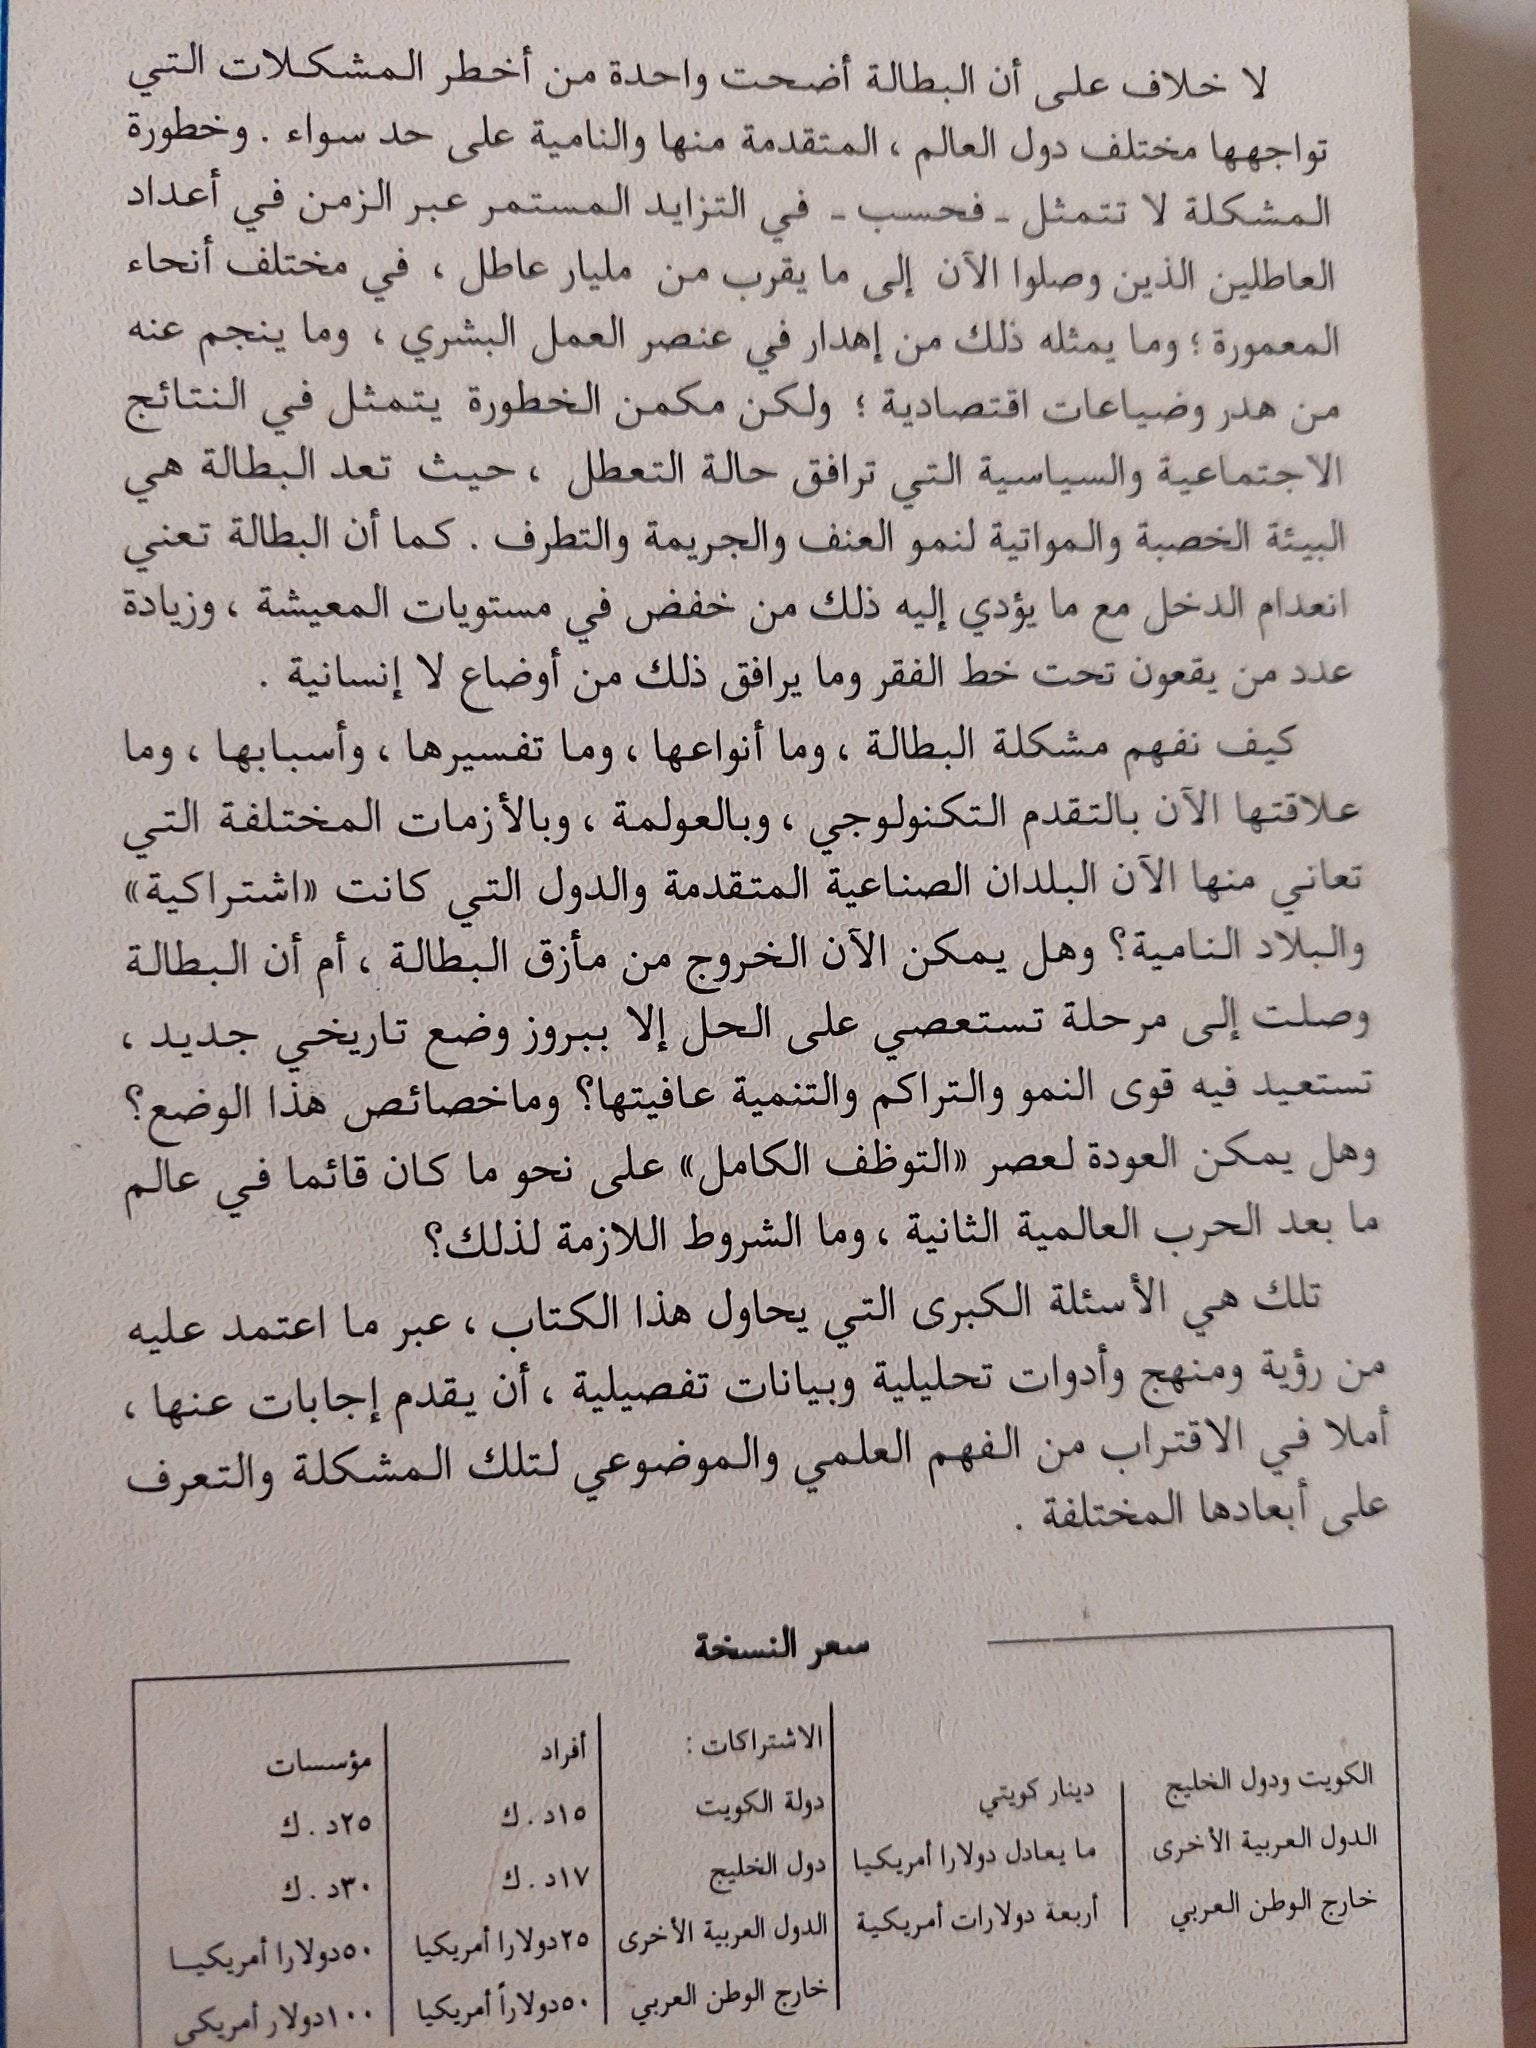 لا خلاف على أن البطالة أضحت واحدة من أخطر المشكلات التي
تواجهها مختلف دول العالم ، المتقدمة منها والنامية على حد سواء . وخطورة
المشكلة لا تتمثل ـ فحسب ـ في التزايد المستمر عبر الزمن في أعداد
العاطلين الذين وصلوا الآن إلى ما يقرب من مليار عاطل ، في مختلف أنحاء
المعمورة ؛ وما يمثله ذلك من إهدار في عنصر العمل البشري ، وما ينجم عنه
من هدر وضياعات اقتصادية ؛ ولكن مكمن الخطورة يتمثل في النتائج
الاجتماعية والسياسية التي ترافق حالة التعطل ، حيث تعد البطالة هي
البيئة الخصبة والمواتية لنمو العنف والجريمة والتطرف . كما أن البطالة تعني
انعدام الدخل مع ما يؤدي إليه ذلك من خفض في مستويات المعيشة ، وزيادة
عدد من يقعون تحت خط الفقر وما يرافق ذلك من أوضاع لا إنسانية .
كيف نفهم مشكلة البطالة ، وما أنواعها ، وما تفسيرها ، وأسبابها ، وما
علاقتها الآن بالتقدم التكنولوجي ، وبالعولمة ، وبالأزمات المختلفة التي
تعاني منها الآن البلدان الصناعية المتقدمة والدول التي كانت «اشتراكية»
والبلاد النامية؟ وهل يمكن الآن الخروج من مأزق البطالة ، أم أن البطالة
وصلت إلى مرحلة تستعصي على الحل إلا ببروز وضع تاريخي جديد ،
تستعيد فيه قوى النمو والتراكم والتنمية عافيتها؟ وماخصائص هذا الوضع؟
وهل يمكن العودة لعصر «التوظف الكامل» على نحو ما كان قائما في عالم
ما بعد الحرب العالمية الثانية ، وما الشروط اللازمة لذلك؟
تلك هي الأسئلة الكبرى التي يحاول هذا الكتاب ، عبر ما اعتمد عليه
من رؤية ومنهج وأدوات تحليلية وبيانات تفصيلية ، أن يقدم إجابات عنها ،
أملا في الاقتراب من الفهم العلمي والموضوعي لتلك المشكلة والتعرف
على أبعادها المختلفة .
سعر النسخة
الكويت ودول الخليج دينار كويتي
الدول العربية الأخرى ما يعادل دولارا أمريكيا
خارج الوطن العربي أربعة دولارات أمريكية
الاشتراكات : أفراد مؤسسات
دولة الكويت ١٥د . ك ٢٥د . ك
دول الخليج ١٧د . ك ٣٠د . ك
الدول العربية الأخرى ٢٥دولارا أمريكيا ٥٠دولارا أمريكيا
خارج الوطن العربي ٥٠دولاراً أمريكيا ١٠٠دولار أمريكي